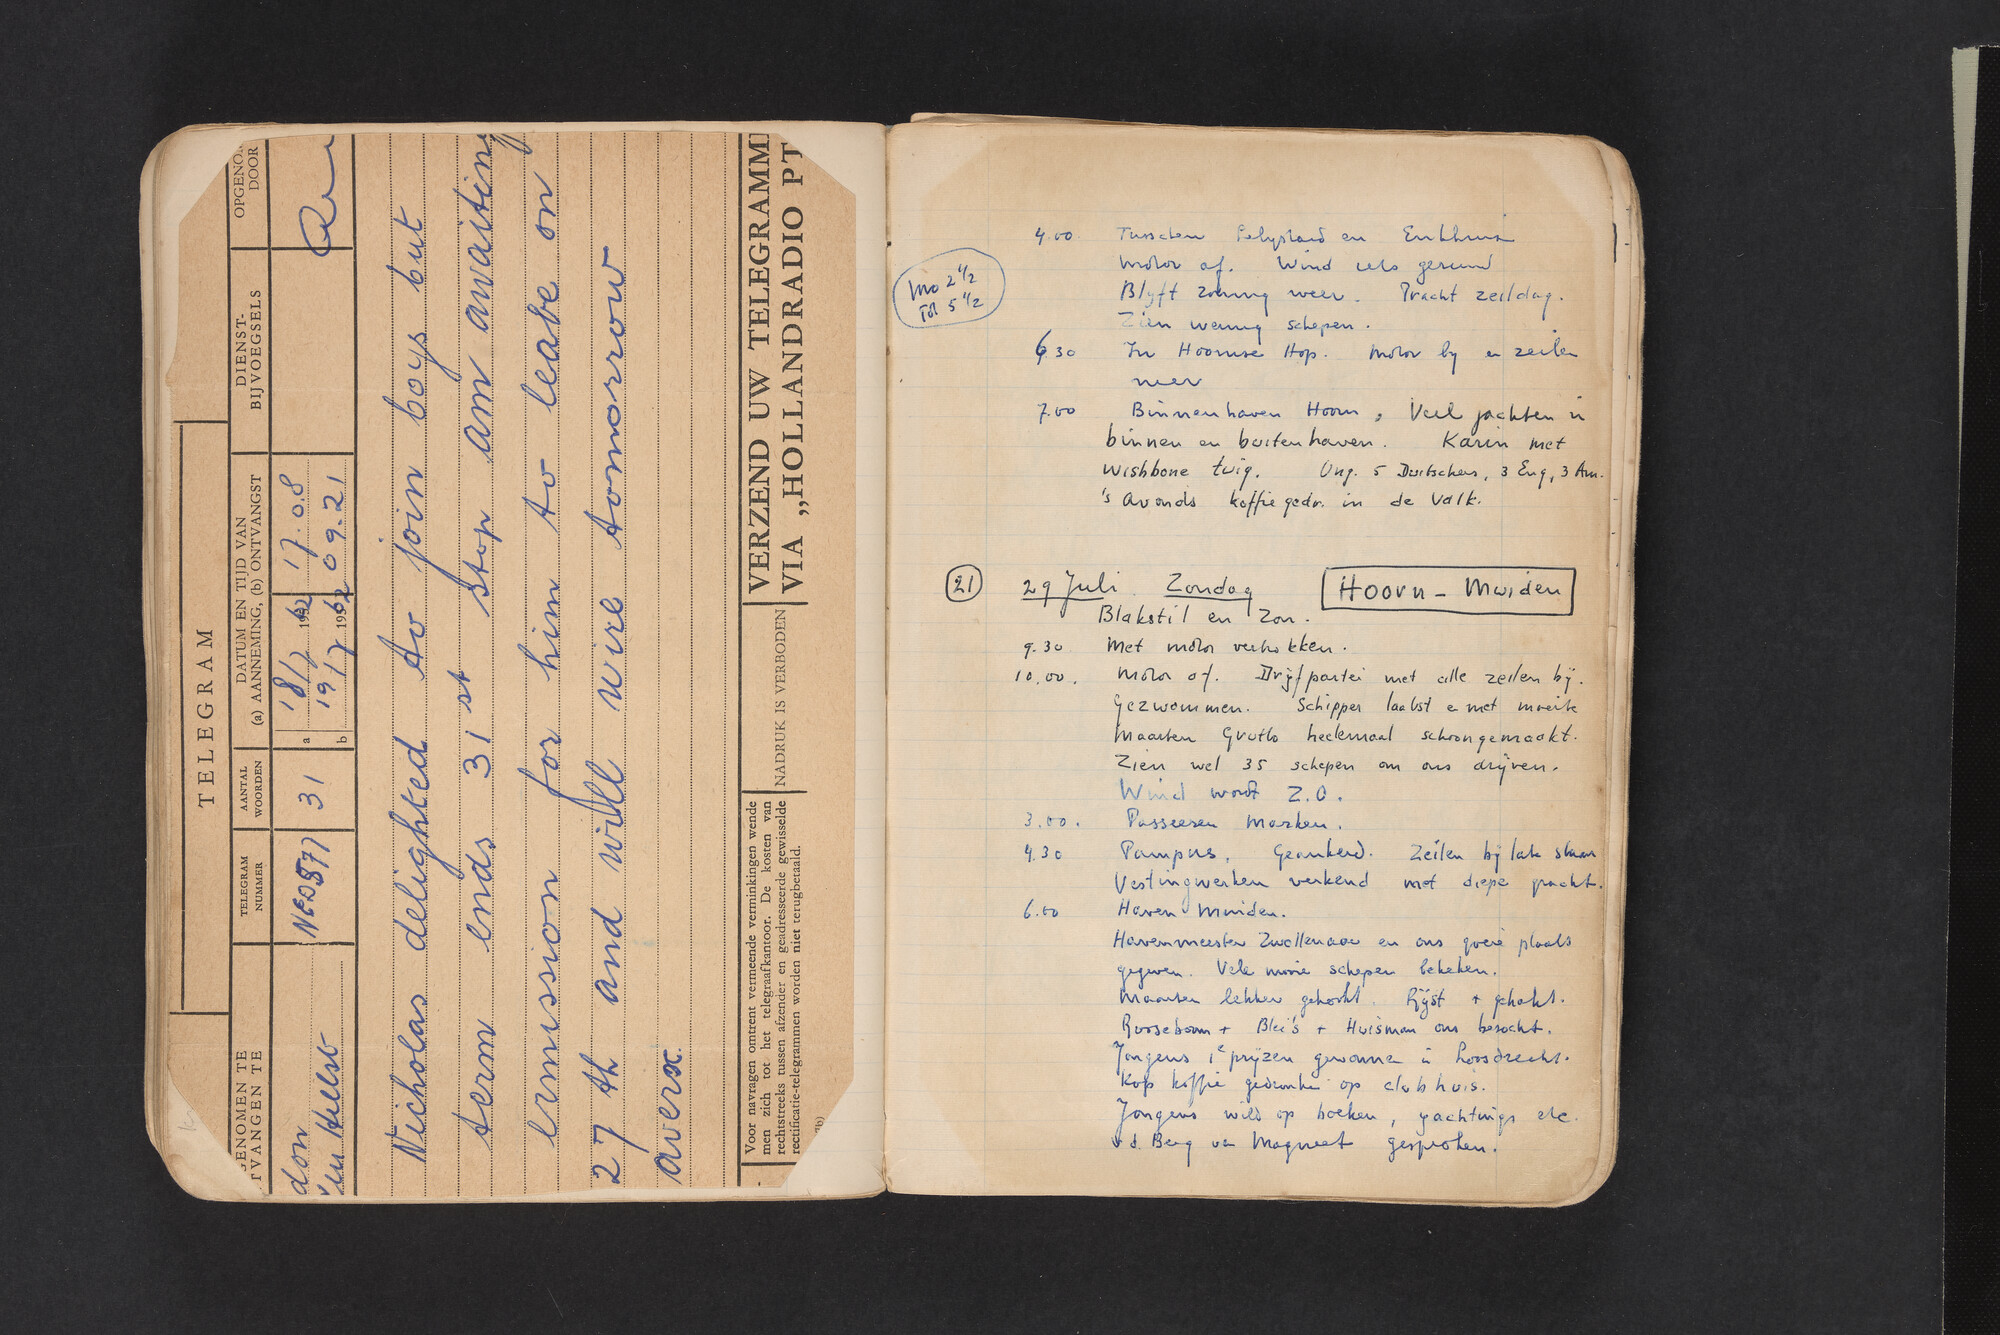 TELEGRAM
GENOMEN TE
TVANGEN TE
TELEGRAM
NUMMER
AANTAL
WOORDEN
DATUM EN TIJD VAN
(a) AANNEMING, (b) ONTVANGST
DIENST-
BIJVOEGSELS
OPGENO
DOOR
don
31
a 18/7 1962 17.08
b 19/7 1962 09.21
Nicholas delighted to join boys but
term ends 31 st stop am awaiting
ermission for him to leabe on
27 th and will wire tomorrow
averx
Voor navragen omtrent vermeende verminkingen wende
men zich tot het telegraafkantoor. De kosten van
rechtstreeks tussen afzender en geadresseerde gewisselde
rectificatie-telegrammen worden niet terugbetaald.
NADRUK IS VERBODEN
VERZEND UW TELEGRAMM
VIA „HOLLANDRADIO PT
4.00 Tusschen Lelystad en Enkhuizen
motor af. Wind iets geruimd
Blyft zonnig weer. Pracht zeildag.
Zien weinig schepen.
Mo 2 1/2
Tot 5 1/2
6 30 In Hoornse Hop. Motor by en zeilen
neer
7.00 Binnenhaven Hoorn, Veel jachten in
binnen en buitenhaven. Karin met
wishbone tuig. Ong. 5 Duitschers, 3 Eng, 3 Am.
's avonds koffie gedr. in de Valk.
21 29 Juli Zondag Hoorn - Muiden
Blakstil en Zon.
9.30 Met motor vertrokken.
10.00. Motor af. Drijfpartij met alle zeilen bij.
Gezwommen. Schipper laatst en met moeite
Maarten Grutto heelemaal schoongemaakt.
Zien wel 35 schepen om ons drijven.
Wind wordt Z.O.
3.00. Passeeren Marken.
4.30 Pampus. Geankerd. Zeilen bij late staan
Vestingwerken verkend met diepe gracht.
6.00 Haven Muiden.
Havenmeester en ons goeie plaats
gegeven. Vele mooie schepen bekeken.
Maarten lekker gekookt. Rijst + gehakt.
Rooseboom + Blei's + Huisman ons bezocht.
Jongens 1e prijzen gewonnen in Loosdrecht.
Kop koffie gedronken op clubhuis.
Jongens wild op boeken, yachtings etc.
v.d. Berg van Magneet gesproken.